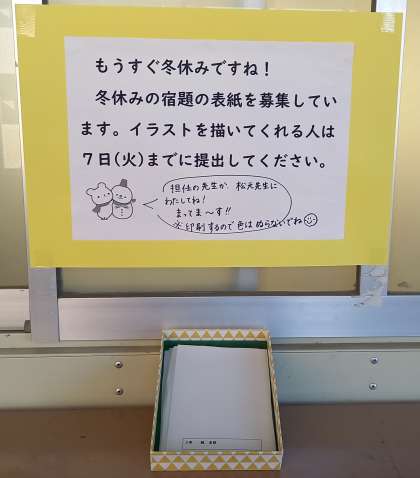 もうすぐ冬休みですね！
冬休みの宿題の表紙を募集してい
ます。イラストを描いてくれる人は
７日(火)までに提出してください。
担任の先生か、松元先生に
わたしてね！
まってま〜す!!
※印刷するので色はぬらないでね
年 組 名前